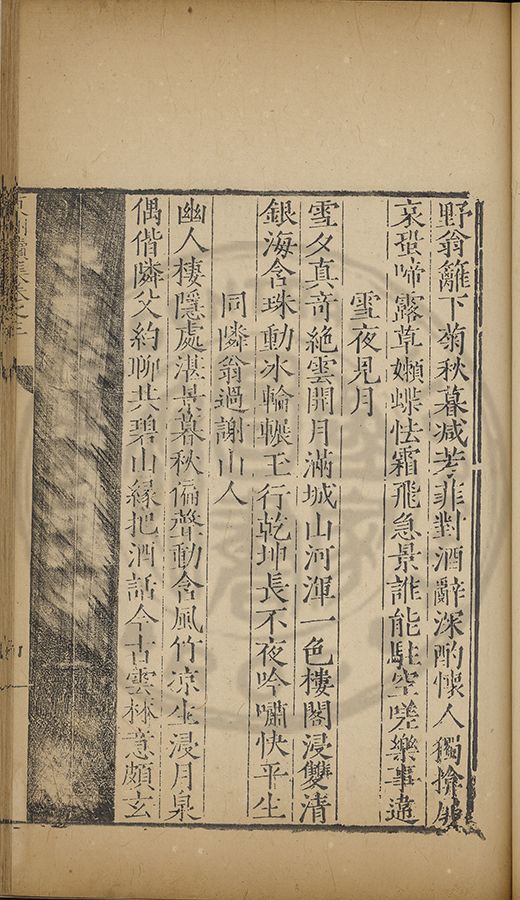 野翁籬下菊秋暮减芳菲對酒辭深酌懷人獨掩
哀蛩啼露草嬾蝶怯霜飛急景誰能駐空嗟樂事違
雪夜見月
雪夕真奇絕雲開月滿城山河渾一色樓閣浸雙清
銀海含珠動冰輪輾玉行乾坤長不夜吟嘯快平生
同隣翁過謝山人
幽人棲隱處湛景暮秋偏聲動含風竹凉生浸月泉
偶偕隣父約聊共碧山緣把酒話今古雲林意頗玄